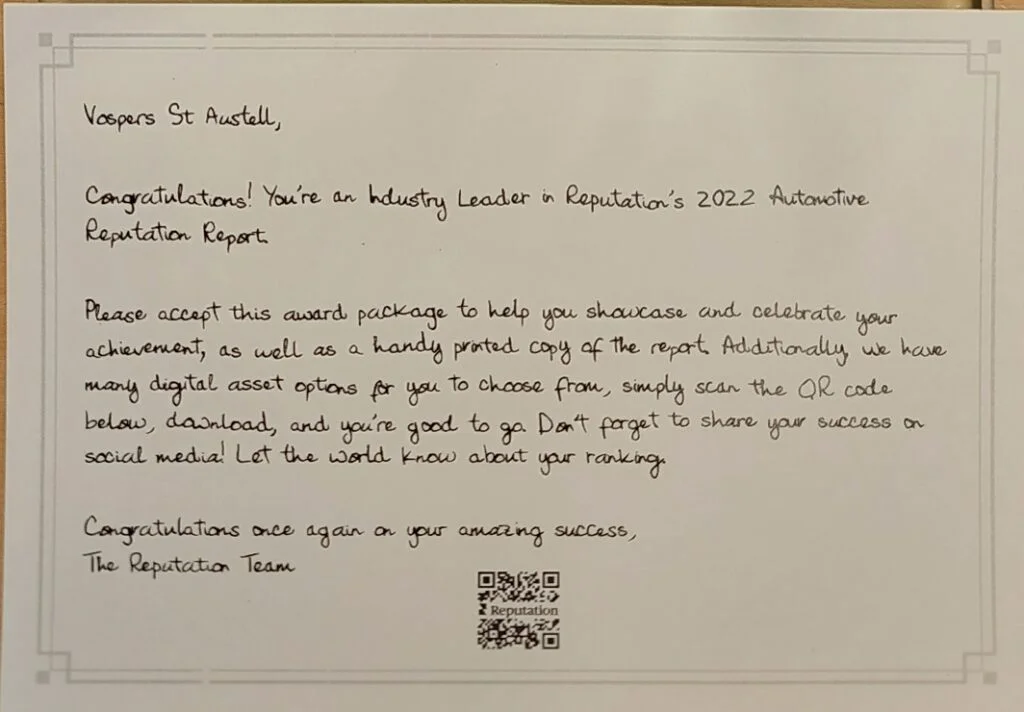 Vospers St Austell,
Congratulations! You're an Industry Leader in Reputation's 2022 Automotive
Reputation Report.
Please accept this award package to help you showcase and celebrate your
achievement, as well as a handy printed copy of the report. Additionally, we have
many digital asset options for you to choose from, simply scan the QR code
below, download, and you're good to go. Don't forget to share your success on
social media! Let the world know about your ranking.
Congratulations once again on your amazing success,
The Reputation Team
Reputation